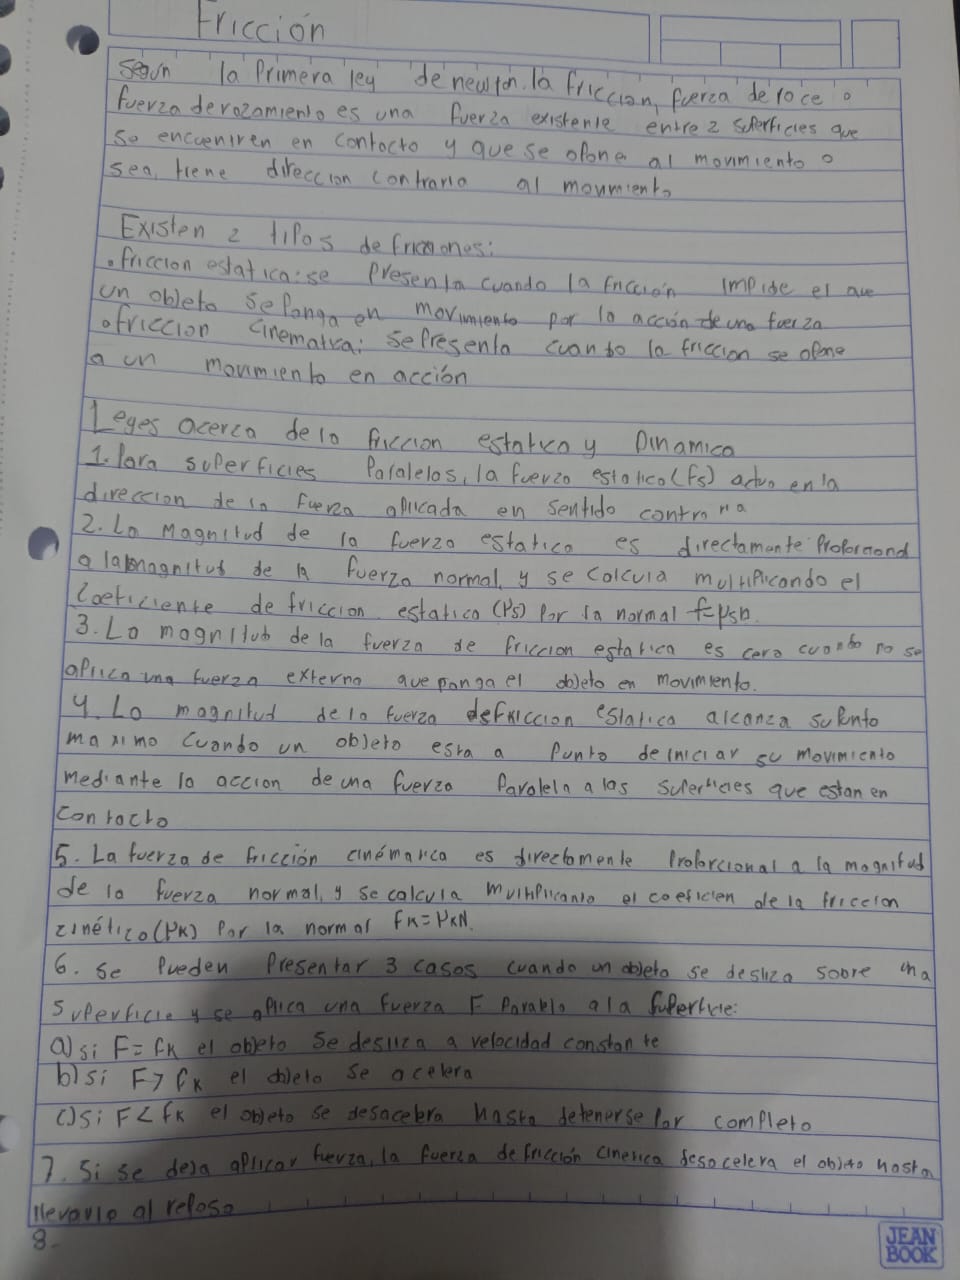 Fricción
Segun la Primera ley de newton. la friccion, fuerza de roce o
fuerza de rozamiento es una fuerza existente entre 2 superficies que
se encuentren en contacto y que se opone al movimiento o
sea, tiene direccion contraria al movimiento
Existen 2 tipos de fricciones:
. friccion estatica: se presenta cuando la fricción impide el que
un objeto se ponga en movimiento por la acción de una fuerza
. friccion cinematica: se presenta cuando la friccion se opone
a un movimiento en acción
Leyes acerca de la friccion estatica y Dinamica
1. Para superficies Paralelos, la fuerza estatico (fs) actua en la
direccion de la fuerza aplicada en sentido contraria
2. La magnitud de la fuerza estatica es directamente Proporcional
a la magnitud de la fuerza normal, y se calcula multiplicando el
Coeficiente de friccion estatico (μs) por la normal f=μsn.
3. La magnitud de la fuerza de friccion estatica es cero cuando no se
aplica una fuerza externa que ponga el objeto en movimiento.
4. La magnitud de la fuerza de friccion estatica alcanza su Punto
maximo cuando un objeto esta a punto de iniciar su movimiento
mediante la accion de una fuerza Paralela a las superficies que estan en
contacto
5. La fuerza de fricción cinématica es directamente Proporcional a la magnitud
de la fuerza normal, y se calcula multiplicanto el coeficien de la friccion
cinético (μK) Por la normal fK=μKN.
6. Se Pueden Presentar 3 casos cuando un objeto se desliza sobre una
superficie y se aplica una fuerza F Paralelo a la superficie:
a) si F=fK el objeto Se desliza a velocidad constante
b) si F>fK el objeto se acelera
c) si F<fK el objeto se desacelera hasta detenerse por completo
7. Si se deja aplicar fuerza, la fuerza de fricción cinetica desacelera el objeto hasta
llevarlo al reposo
8-
JEAN
BOOK